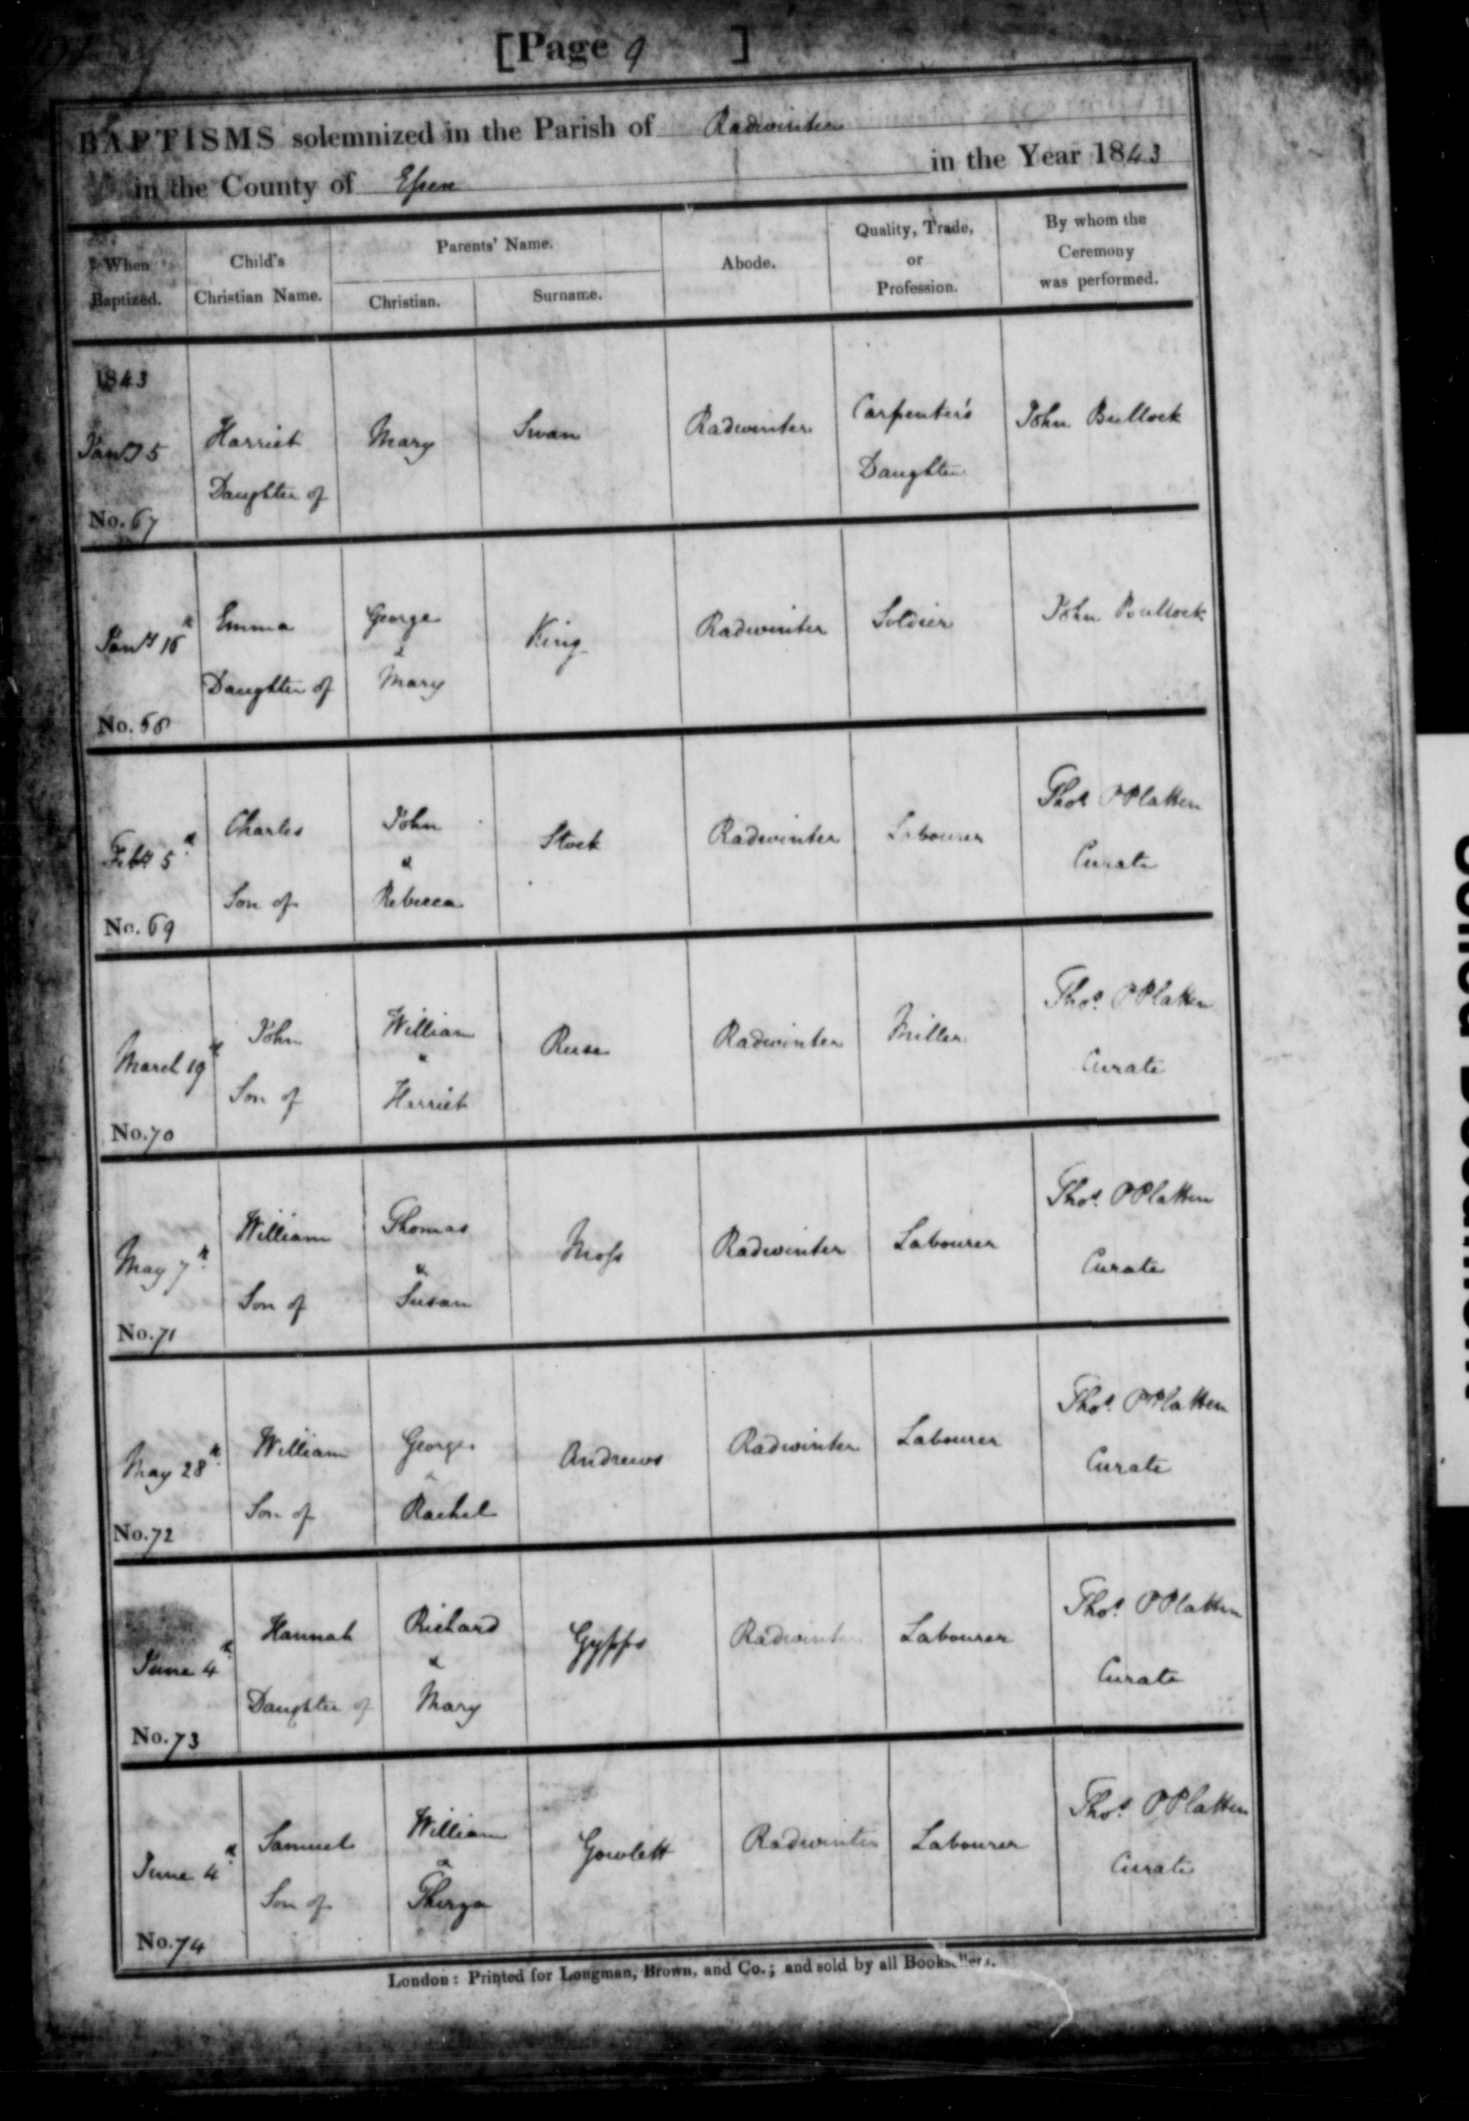 [Page 9 ]
BAPTISMS solemnized in the Parish of Radwinter
in the County of Essex in the Year 1843
When Baptized.
Child's Christian Name.
Parents' Name.
Christian.
Surname.
Abode.
Quality, Trade, or Profession.
By whom the Ceremony was performed.
1843
Jany 5
No. 67
Harriet
Daughter of
Mary
Swan
Radwinter
Carpenter's
Daughter
John Bullock
Jany 16th
No. 68
Emma
Daughter of
George
&
Mary
King
Radwinter
Soldier
John Bullock
Feby 5th
No. 69
Charles
Son of
John
&
Rebecca
Stock
Radwinter
Labourer
Thos P Platten
Curate
March 19th
No. 70
John
Son of
William
&
Harriet
Ruse
Radwinter
Miller
Thos. P Platten
Curate
May 7th
No. 71
William
Son of
Thomas
&
Susan
Moss
Radwinter
Labourer
Thos. P Platten
Curate
May 28th
No. 72
William
Son of
George
&
Rachel
Andrews
Radwinter
Labourer
Thos. P Platten
Curate
June 4th
No. 73
Hannah
Daughter of
Richard
&
Mary
Gypps
Radwinter
Labourer
Thos. P Platten
Curate
June 4th
No. 74
Samuel
Son of
William
&
Thirza
Gowlett
Radwinter
Labourer
Thos. P Platten
Curate
London: Printed for Longman, Brown, and Co.; and sold by all Booksellers.